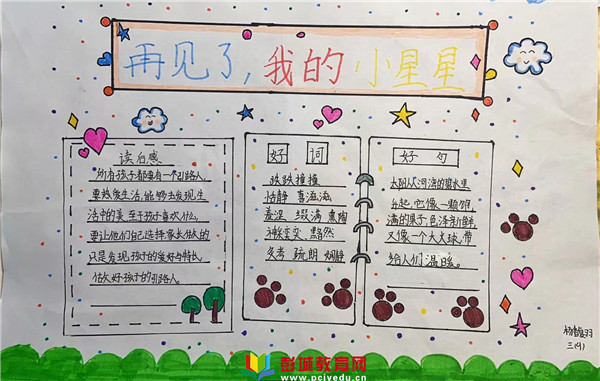 再见了，我的小星星
读后感
所有孩子都要有一个引路人，
要热爱生活，能够去发现生
活中的美，至于孩子喜欢什么，
要让他们自己选择，家长做的
只是发现孩子的爱好与特长，
做好孩子的引路人。
好词
跌跌撞撞
恬静 喜滋滋
羞涩 缀满 熏陶
黯然
疏朗 娴静
好句
太阳从河湾的碧水里
升起，它像一颗饱
满的果子，色泽新鲜，
又像一个大火球，带
给人们温暖。
三(9)
彭城教育网
www.pcjyedu.cn